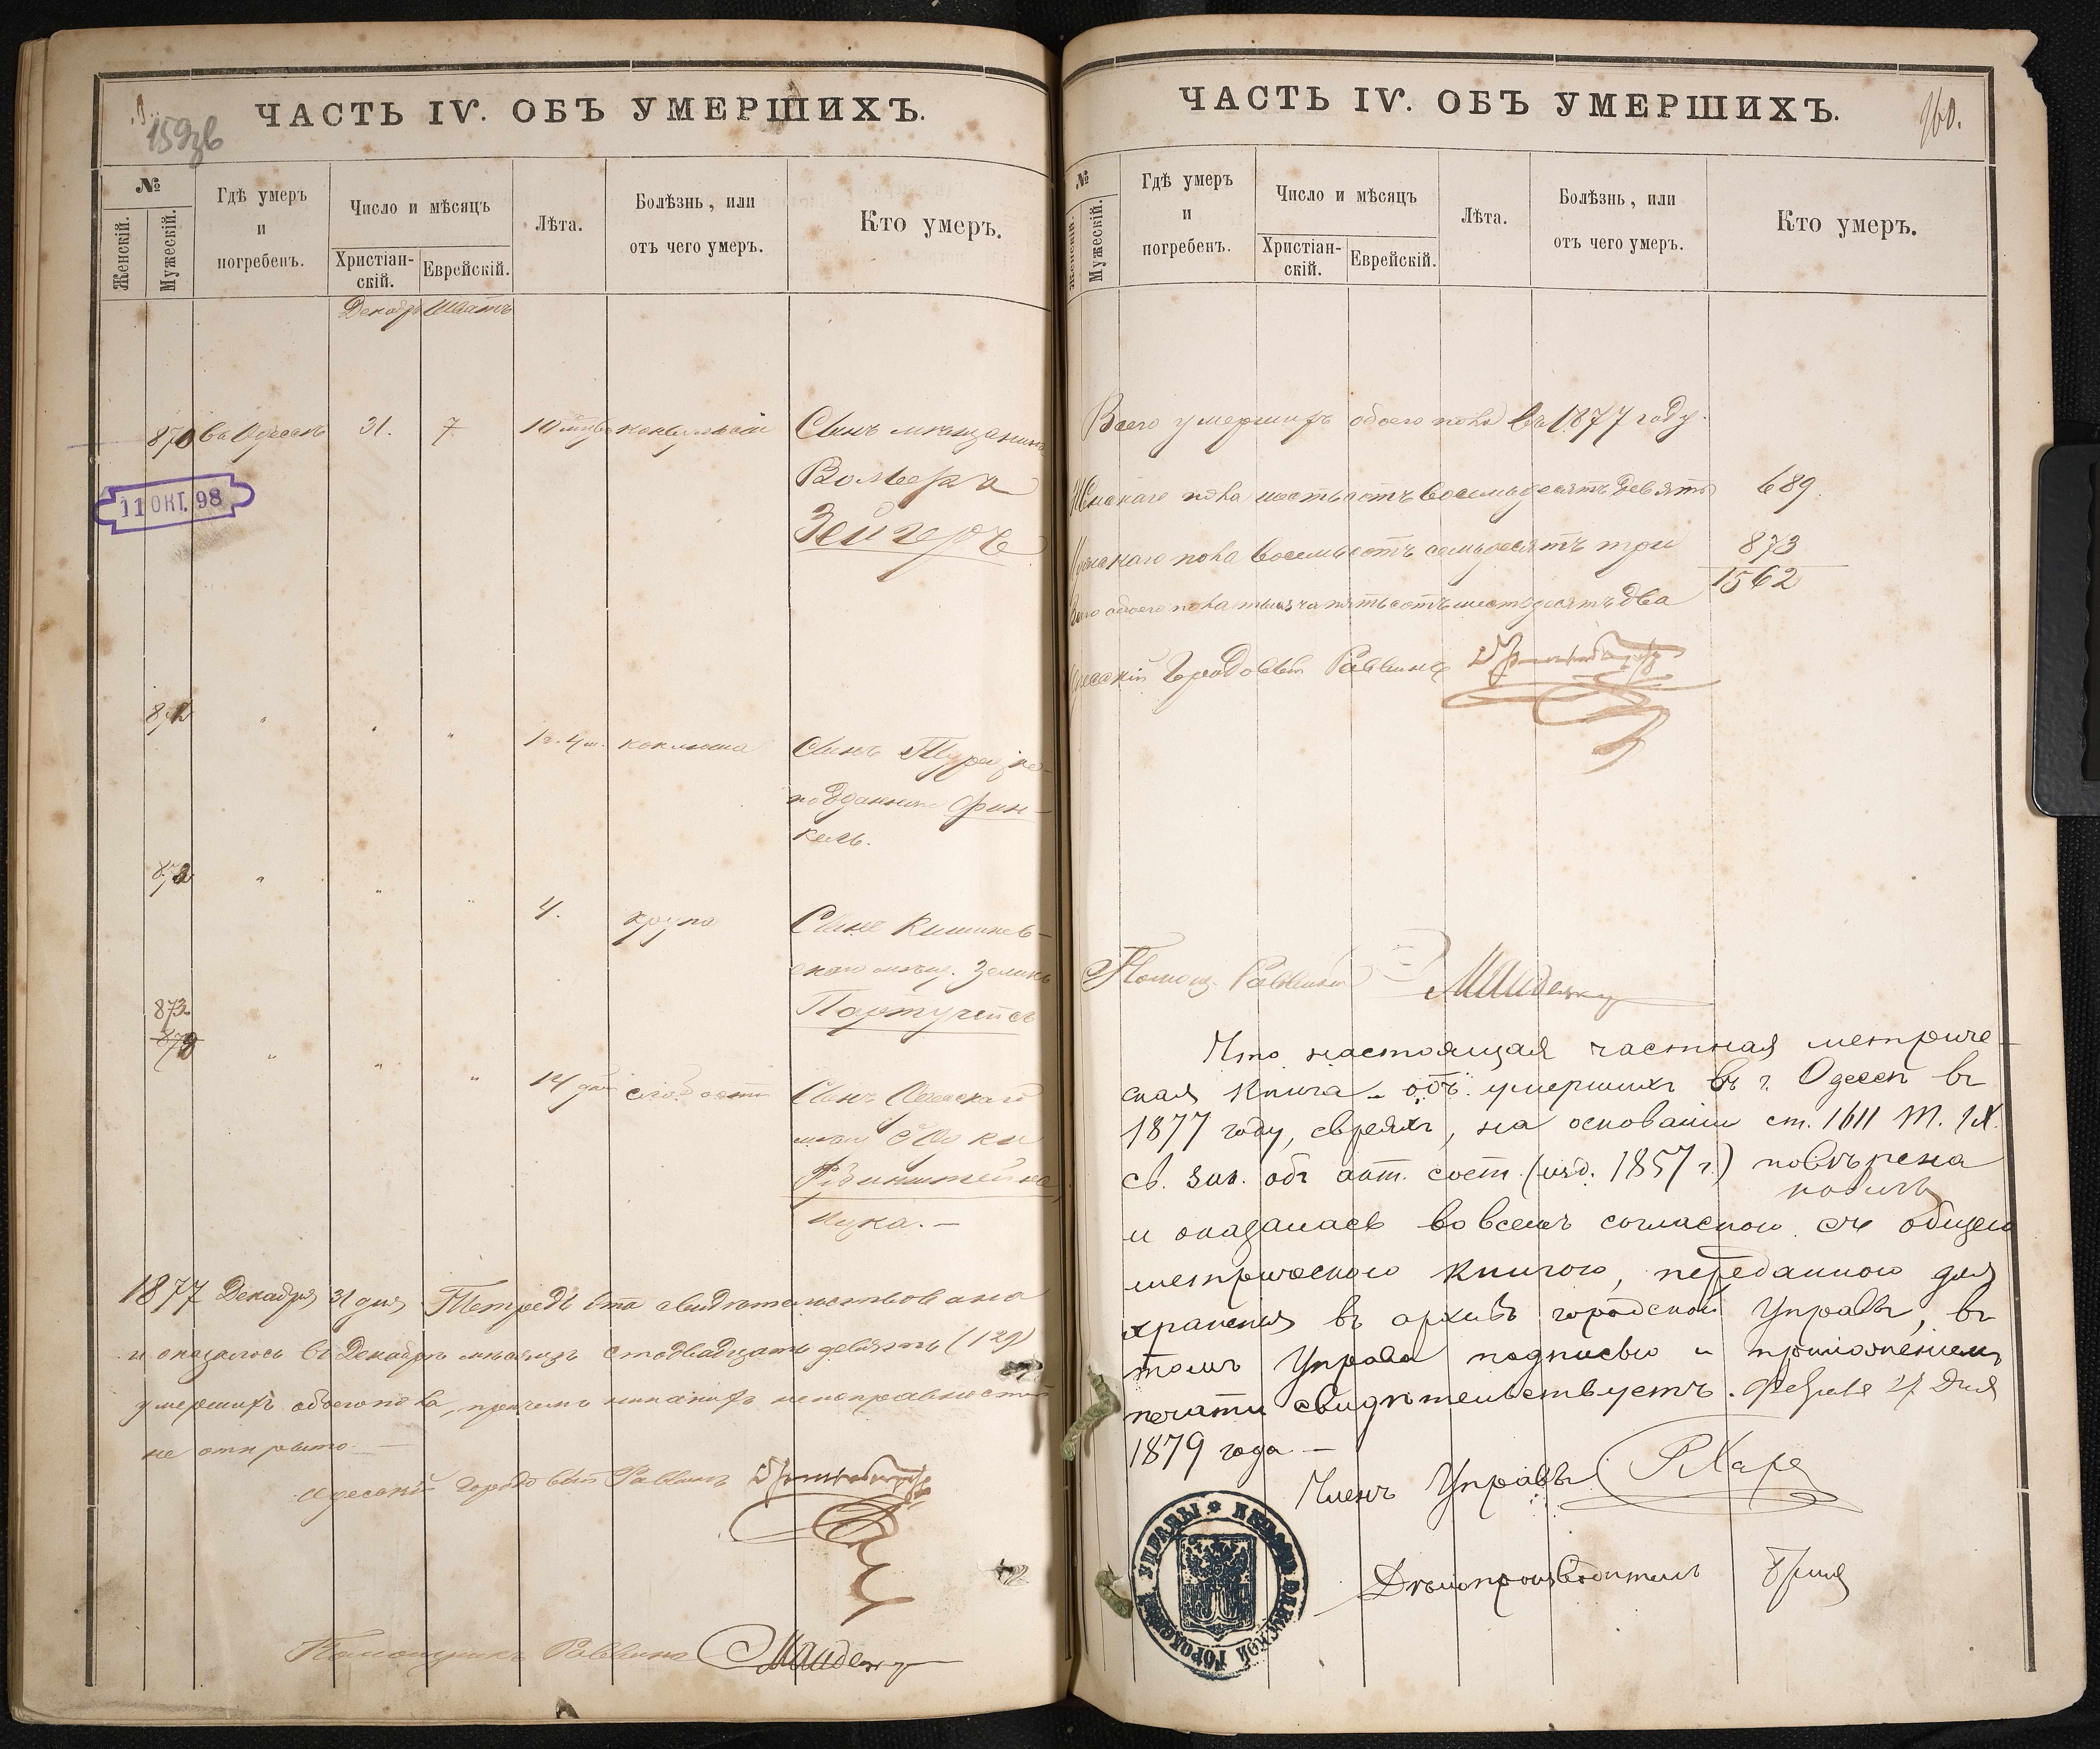 159об
ЧАСТЬ IV. ОБЪ УМЕРШИХЪ.
№
Женскій.
Мужескій.
Гдѣ умеръ
и
погребенъ.
Число и мѣсяцъ
Христіан-
скій.
Еврейскій.
Лѣта.
Болѣзнь, или
отъ чего умеръ.
Кто умеръ.
Декабрь Шватъ
870 въ Одессѣ 31. 7 10 конвульсій Сынъ мѣщанина
Вольфа
Зейгеръ
11 ОКТ. 98
871 " " " 1 г. 4 м. коклюша Сынъ Турецко-
подданнаго Фин-
кель.
872 " " " 4. крупа Сынъ Кишинев-
скаго мѣщ. Зелика
Португейсъ
873
" " " 14 дней слабости Сынъ Одесскаго
1877 Декабря 31 дня Тетрадь эта свидѣтельствована
и оказалось въ Декабрѣ мѣсяцѣ сто двадцать девять (129)
умершихъ обоего пола, причемъ никакихъ неисправностей
не открыто. —
Одесскій Городовый Раввинъ
Помощникъ Раввина
ЧАСТЬ IV. ОБЪ УМЕРШИХЪ.
160.
№
Женскій.
Мужескій.
Гдѣ умеръ
и
погребенъ.
Число и мѣсяцъ
Христіан-
скій.
Еврейскій.
Лѣта.
Болѣзнь, или
отъ чего умеръ.
Кто умеръ.
Всего умершихъ обоего пола въ 1877 году.
Женскаго пола шестьсотъ восемьдесятъ девять 689
Мужскаго пола восемьсотъ семьдесятъ три 873
Всего обоего пола тысяча пятьсотъ шестьдесятъ два 1562
Одесскій Городовый Раввинъ
Помощ. Раввина
Что настоящая частная метриче-
ская книга объ умершихъ въ г. Одессѣ въ
1877 году, евреяхъ, на основаніи ст. 1611 т. IX.
св. зак. объ акт. сост. (изд. 1857 г.) повѣрена
и оказалась во всемъ согласною съ общею
метрическою книгою, переданною для
храненія въ архивъ городской Управы, въ
томъ Управа подписью и приложеніемъ
печати свидѣтельствуетъ. Февраля дня
1879 года —
Членъ Управы
Дѣлопроизводитель